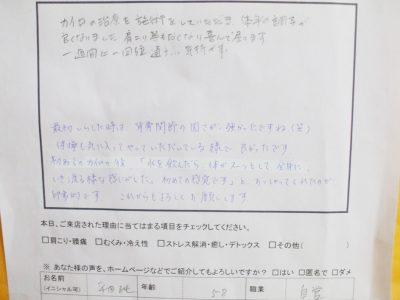 カイロの治療を施術をしていただき 体の調子が
良くなりました 肩こり等もなくなり喜んで居ります
一週間に一回位 通う 気持です
最初いらした時は 背骨 関節の固さが 強かったですね(笑)
体操も気に入ってやっていただいている様で 良かったです
初めてのカイロ後 「水を飲んだら 体がスーっとして 全身に
いき渡る様な感じがした。初めての感覚です」と おっしゃってくれたのが
印象的です これからもよろしくお願いします
本日、ご来店された理由に当てはまる項目をチェックしてください。
□肩こり・腰痛 □むくみ・冷え性 □ストレス解消・癒し・デトックス □その他( )
※ あなた様の声を、ホームページなどでご紹介してもよろしいですか？ □はい □匿名で □ダメ
お名前 年齢 58 職業 自営
(イニシャル可)